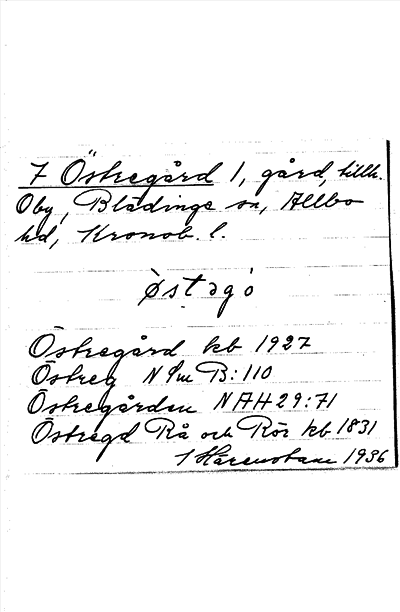 7 Östregård 1, gård, tillh.
Oby, Blädinge sn, Allbo
hd, Kronob. l.
østəgò
Östregård kb 1927
Östreg N Sm B:110
Östregården NAH29:71
Östregd Rå och Rör kb 1831
1936